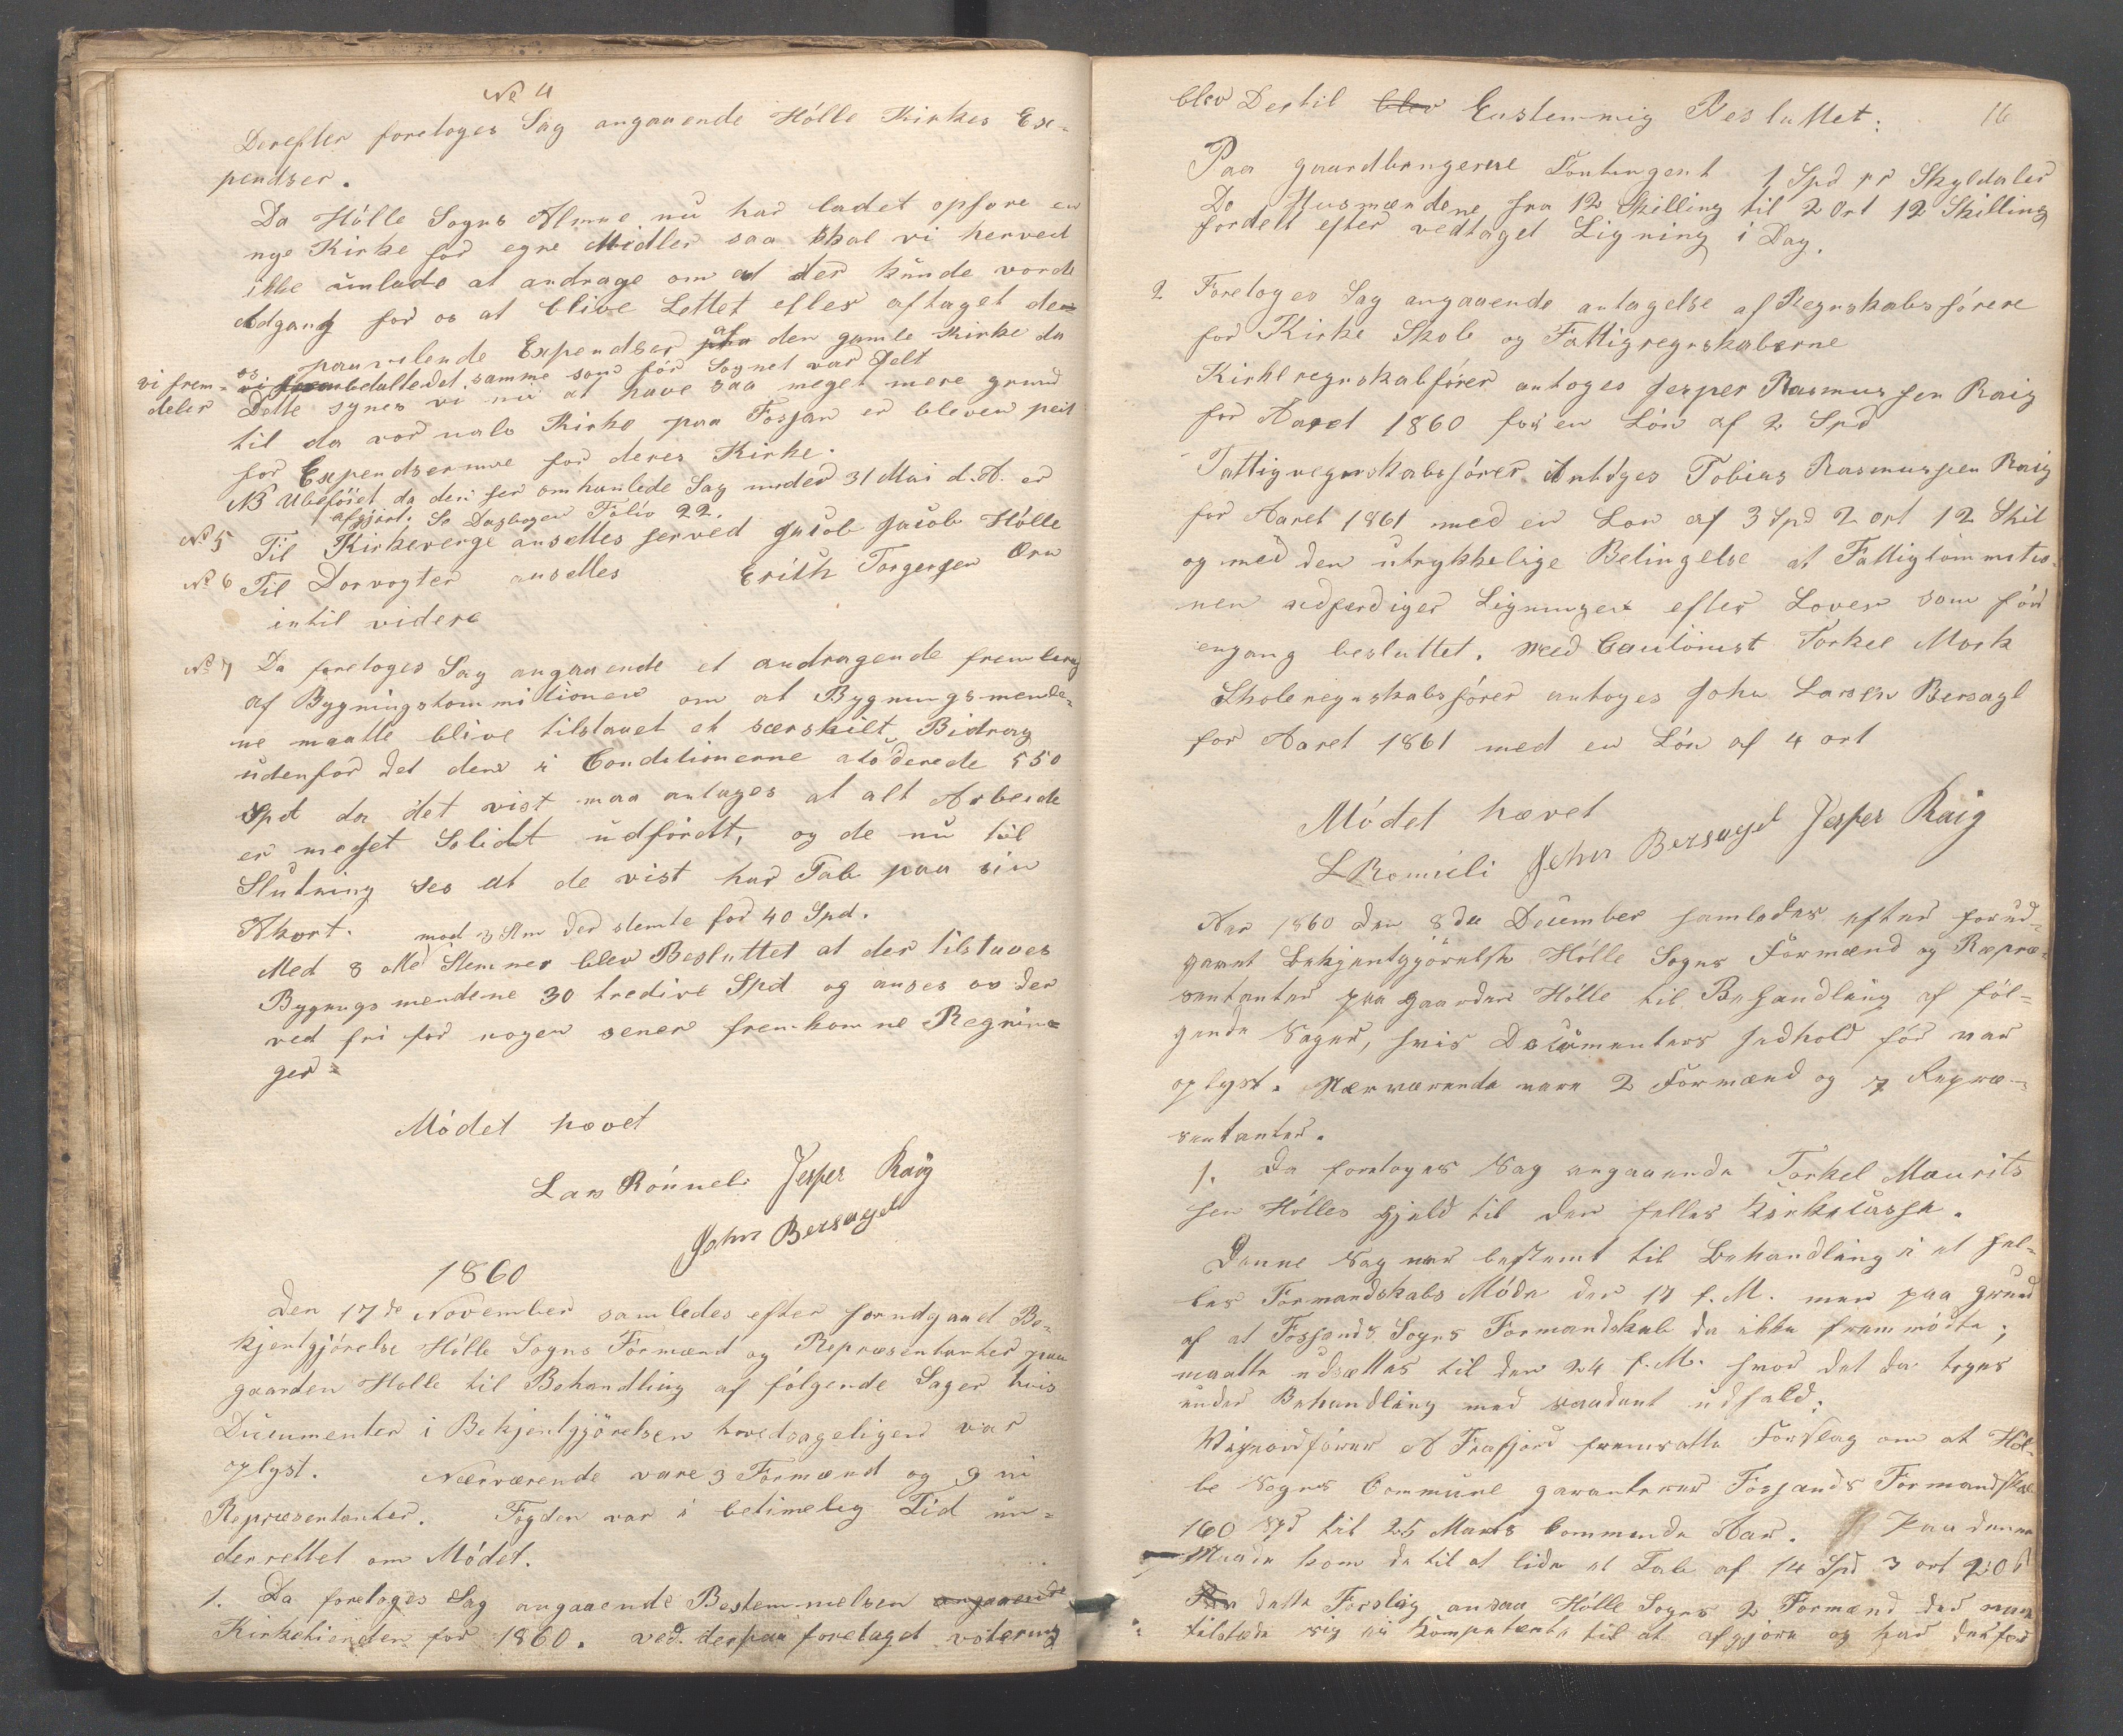 No 4
Derefter foretoges Sag angaaende Hólle Kirkes Ex-
pendser.
Da Hólle Sogns Almue nu har ladet opføre en
nye Kirke for egne Midler saa skal vi herved
ikke ünlade at andrage om at der künde vorde
Adgang for os at blive Lettet eller aftaget den
os paavilende Expendser paa af den gamle Kirke da
vi frem-
deles
vi frem betalte det samme som fór Sognet var Delt
Dette synes vi nu at have saa meget mere grund
til da vor nabo Kirke paa Fosjan er bleven frit
for Expendserne for deres Kirke.
NB Ubefóiet da den her omhanlede Sag under 31 Mai d.A. er
afgjort. Se Dagbogen Folio 22.
No 5 Til Kirkeverge ansettes herved Jacob Jacob Hólle
No 6 Til Dorvogter ansettes Erich Torgersen Øru
intil videre
No 7 Da foretoges Sag angaaende et andragende fremlerag
af Bygningskommitionen om at Bygningsmende-
ne maatte blive tilstaaet et særskilt Bidrag
udenfor det dem i Conditionerne aloderede 550
Spd da det vist maa antages at alt Arbeide
er meget Solidt üdfórdt, og de nü til
Slutning ses at de vist har Tab paa sin
Akort. mod 3 Stm der stemte for 40 Spd.
Med 8 otte Stemner blev Besluttet at der tilstaaes
Bygnngsmendene 30 tredive Spd og anses os der
ved fri for nogen sener fremkomne Regnin-
ger
Módet hævet
Lars Rónneli Jesper Raig
John Bersagel
1860
Den 17de November samledes efter forudgaaet Be-
kjentgjórelse Hólle Sogns Formænd og Repræsentanter paa
gaarden Holle til Behandling af fólgende Sager hvis
Ducumenter i Bekjentgjórelsen hovedsageligen var
oplyst. Nærværende vare 3 Formænd og 9 ni
Repræsentanter. Fogden var i betimelig Tid un-
derrettet om Módet.
1. Da foretoges Sag angaaende Bestemmelsen angaaende
Kirketienden for 1860. ved derpaa foretaget votering
16
blev Dertil blev Enstemmig Besluttet:
Paa gaardbrugerne Contingent 1 Spd pr Skyldaler
Do Husmændene fra 12 Skilling til 2 Ort 12 Skilling
fordelt efter vedtaget Ligning i Dag.
2 Foretoges Sag angaaende antagelse af Regnskabsfórere
for Kirke Skole og Fattigregnskaberne
Kirkeregnskabfórer antoges Jesper Rasmussen Raig
for Aaret 1860 for en Lón af 2 Spd
Fattigregnskabsfórer Antóges Tobias Rasmussen Raig
for Aaret 1861 med en Lon af 3 Spd 2 ort 12 Skil
og med den ütrykkelige Betingelse at Fattigkommitio-
nen udfærdiger Ligningen efter Loven som fór
engang besluttet. med Cautionist Torkel Mork
Skoleregnskabsfórer antoges John Larsen Bersagl
for Aaret 1861 med en Lón af 4 ort
Módet hævet
L Romieli John Bersagel Jesper Raig
Aar 1860 den 8de December samledes efter forud-
gaaet Bekjentgjórelse Hólle Sogns Formænd og Repræ-
sentanter paa gaarden Hólle til Behandling af föl-
gende Sager, hvis Documenters Indhold fór var
oplyst. Nærværende vare 2 Formænd og 7 Repræ-
sentanter.
1. Da foretoges Sag angaaende Torkel Maurits
sen Hólles Gjeld til den felles Kirkecasse.
Denne Sag var bestemt til Behandling i et fel-
les Formandskabs Móde den 17 f.M. men paa Grund
af at Fossands Sogns Formandskab da ikke fremmódte;
maatte udsættes til den 24 f.M. hvor det da toges
under Behandling med saadant udfald:
Viseordfórer A Frafjord fremsatte Forslag om at Hól-
le Sogns Commüne garanterer Fossands Formandskab
160 Spd til 25 Marts kommende Aar. Paa denne
Maade kom de til at lide et Tab af 14 Spd 3 ort 20 s
Paa dette Forslag ansaa Hólle Sogns 2 Formænd der var
tilstæde sig ei Kompetente til at afgjóre og har derfor